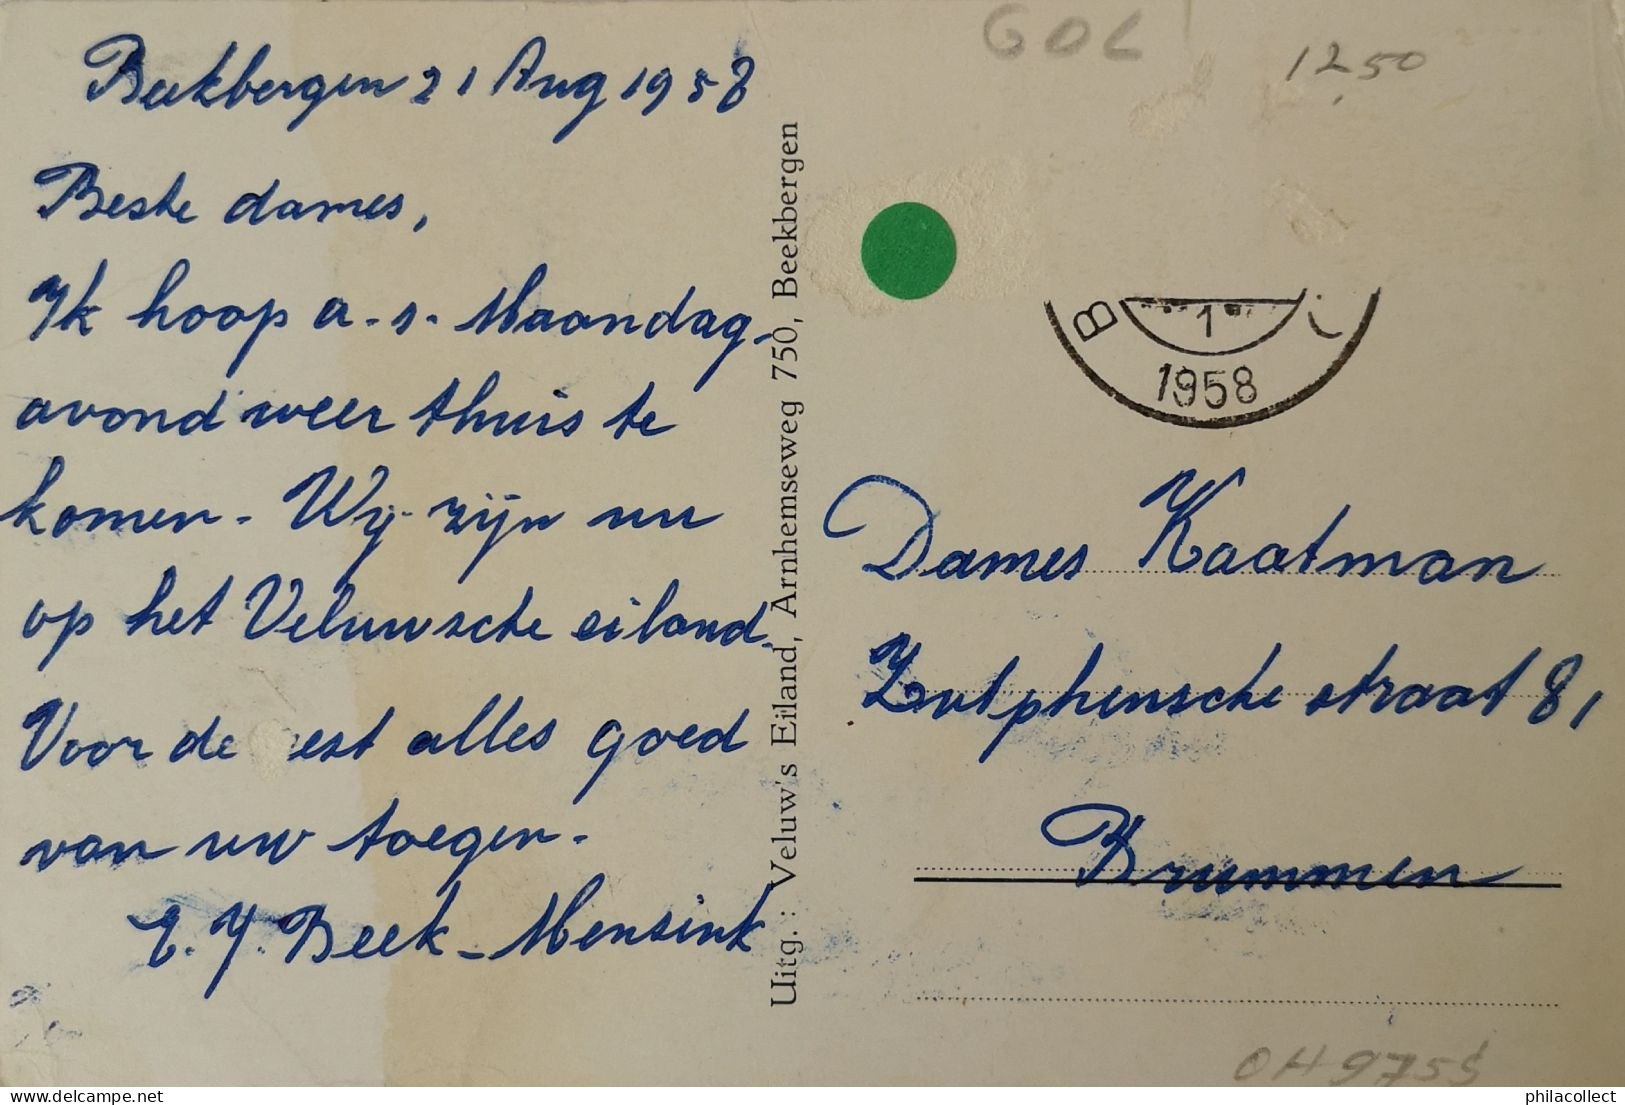 Beekbergen 21 Aug 1958
Beste dames,
Ik hoop a.s. Maandag-
avond weer thuis te
komen. Wij zijn nu
op het Veluwsche eiland.
Voor de est alles goed
van uw toegen.
E. J. Beek-Mensink
Uitg.: Veluw's Eiland, Arnhemseweg 750, Beekbergen
GOL
12,50
B 1
1958
Dames Kaatman
Zutphensche straat 81
Brummen
OH 9755
philacollect